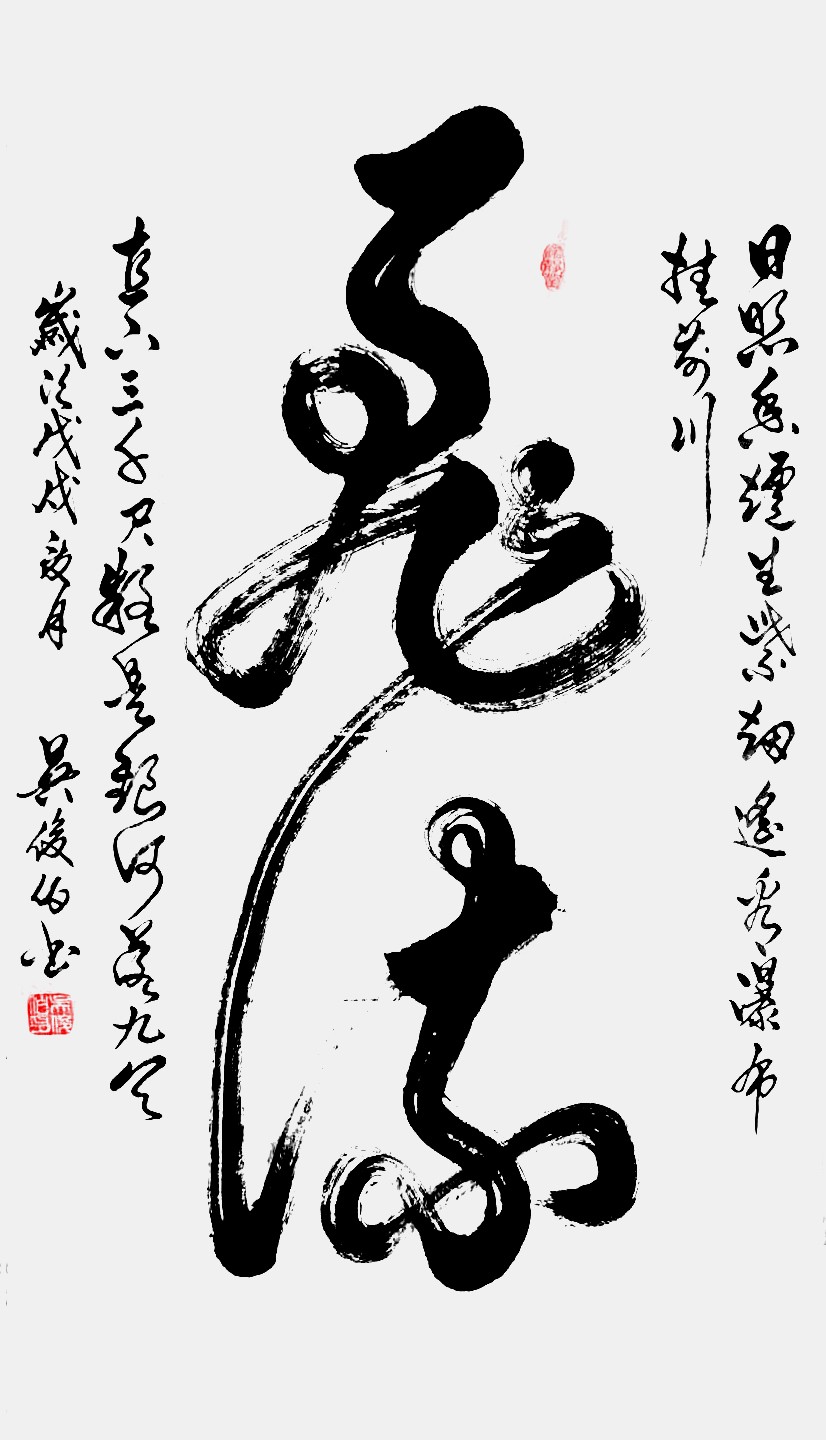 日照香爐生紫烟遙看瀑布
挂前川
飛流
直下三千尺疑是銀河落九天
歲次戊戌月 吳俊伯书